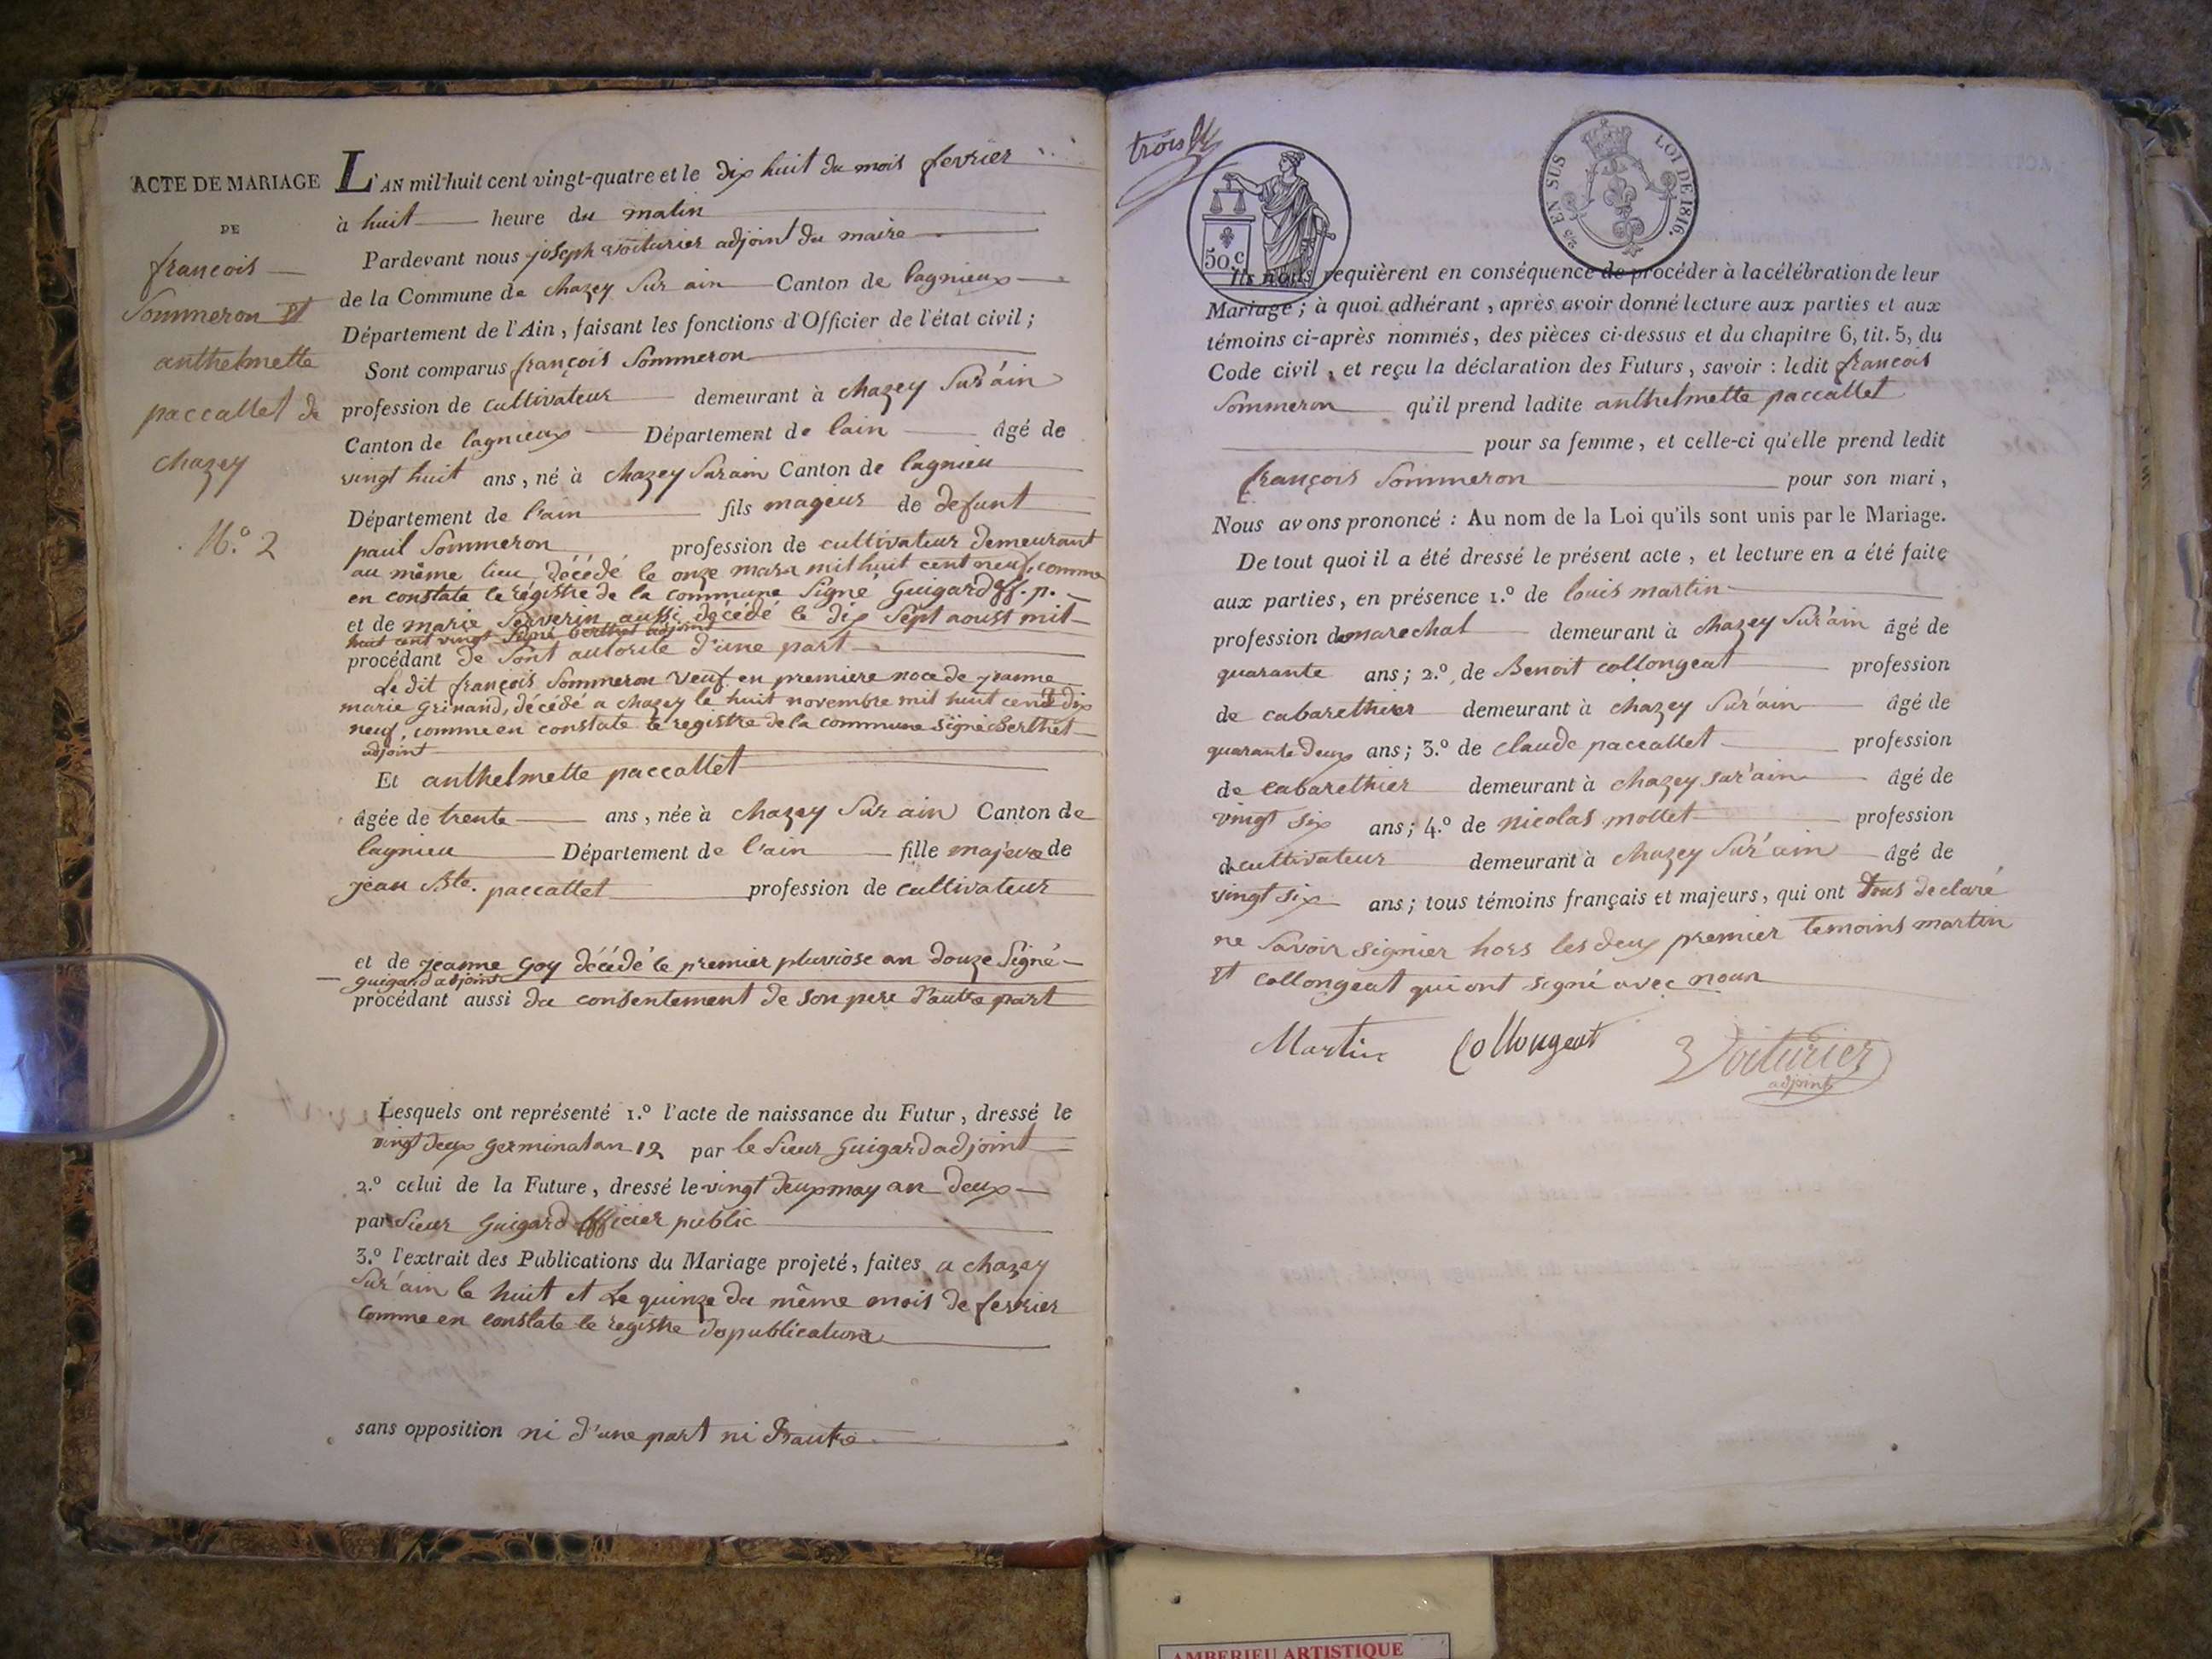 ACTE DE MARIAGE
DE
francois
Sommeron et
anthelmette
paccallet de
chazey
N.o 2
L'AN mil-huit cent vingt-quatre et le dix huit du mois fevrier
à huit heure du matin
Pardevant nous joseph voiturier adjoint du maire
de la Commune de chazey Sur ain Canton de lagnieux
Département de l'Ain, faisant les fonctions d'Officier de l'état civil;
Sont comparus françois Sommeron
profession de cultivateur demeurant à chazey Sur'ain
Canton de lagnieux Département de lain âgé de
vingt huit ans, né à chazey Surain Canton de lagnieu
Département de l'ain fils mageur de defunt
paul Sommeron profession de cultivateur demeurant
au même lieu, décédé le onze mars mil huit cent neuf, comme
en constate le régistre de la commune Signé Guigard off. p.
et de marie Serverin aussi décédé le dix Sept aoust mil
huit cent vingt Signé berthet adjoint
procédant de Sont autorite d'une part
Le dit françois Sommeron veuf en premiere noce de jeanne
marie Grinand, décédé a chazey le huit novembre mil huit cent dix
neuf, comme en constate le registre de la commune signé Berthet
adjoint
Et anthelmette paccallet
âgée de trente ans, née à chazey Sur ain Canton de
lagnieu Département de l'ain fille majeure de
jean Bte. paccallet profession de cultivateur
et de jeanne Goy décédé le premier pluviose an douze Signé
guigard adjoint
procédant aussi du consentement de son pere d'autre part
Lesquels ont représenté 1.o l'acte de naissance du Futur, dressé le
vingt deux germinal an 12 par le Sieur Guigard adjoint
2.o celui de la Future, dressé le vingt deux may an deux
par Sieur Guigard officier public
3.o l'extrait des Publications du Mariage projeté, faites a chazey
Sur'ain le huit et Le quinze du même mois de fevrier
comme en constate le registre de publication
sans opposition ni d'une part ni d'autre
trois
50.c
25 EN SUS LOI DE 1816.
Ils nous requièrent en conséquence de procéder à la célébration de leur
Mariage; à quoi adhérant, après avoir donné lecture aux parties et aux
témoins ci-après nommés, des pièces ci-dessus et du chapitre 6, tit. 5, du
Code civil, et reçu la déclaration des Futurs, savoir: ledit francois
Sommeron qu'il prend ladite anthelmette paccallet
pour sa femme, et celle-ci qu'elle prend ledit
françois Sommeron pour son mari,
Nous avons prononcé: Au nom de la Loi qu'ils sont unis par le Mariage.
De tout quoi il a été dressé le présent acte, et lecture en a été faite
aux parties, en présence 1.o de louis martin
profession de marechal demeurant à chazey Sur'ain âgé de
quarante ans; 2.o de Benoit collongeat profession
de cabarethier demeurant à chazey Sur'ain âgé de
quarante deux ans; 3.o de claude paccallet profession
de cabarethier demeurant à chazey sur'ain âgé de
vingt six ans; 4.o de nicolas mollet profession
de cultivateur demeurant à chazey Sur'ain âgé de
vingt six ans; tous témoins français et majeurs, qui ont tous declaré
ne Savoir signier hors les deux premier temoins martin
et collongeat qui ont signé avec nous
Martin Collongeat Voiturier
adjoint
AMBERIEU ARTISTIQUE